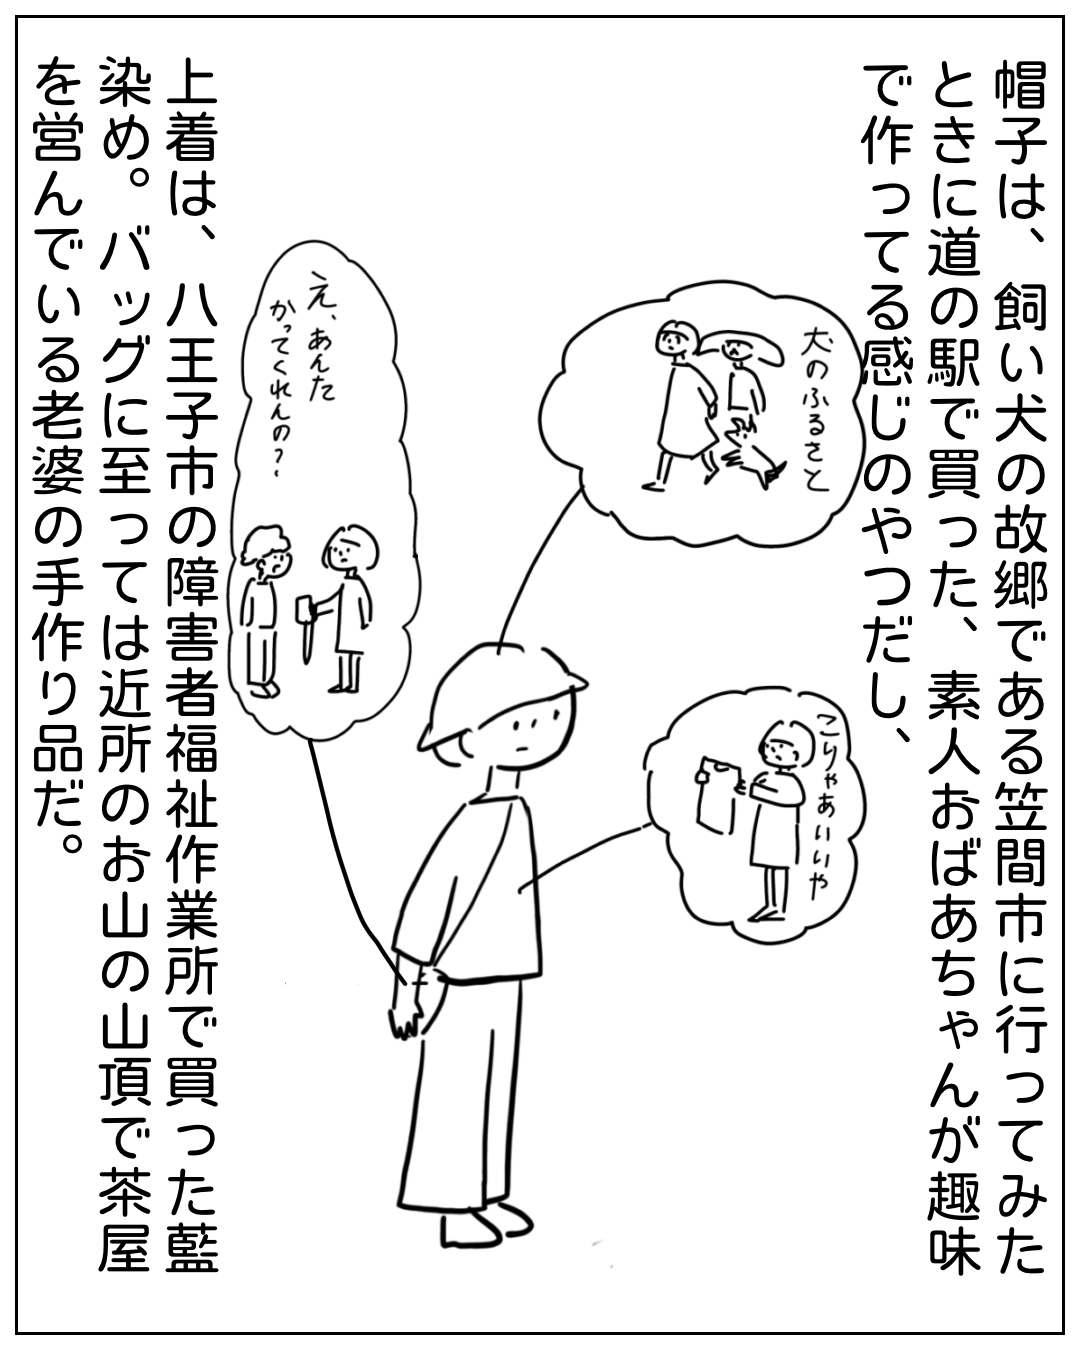 帽子は、飼い犬の故郷である笠間市に行ってみた
ときに道の駅で買った、素人おばあちゃんが趣味
で作ってる感じのやつだし、
犬のふるさと
こりゃあいいや
え、あんた
かってくれんの?
上着は、八王子市の障害者福祉作業所で買った藍
染め。バッグに至っては近所のお山の山頂で茶屋
を営んでいる老婆の手作り品だ。